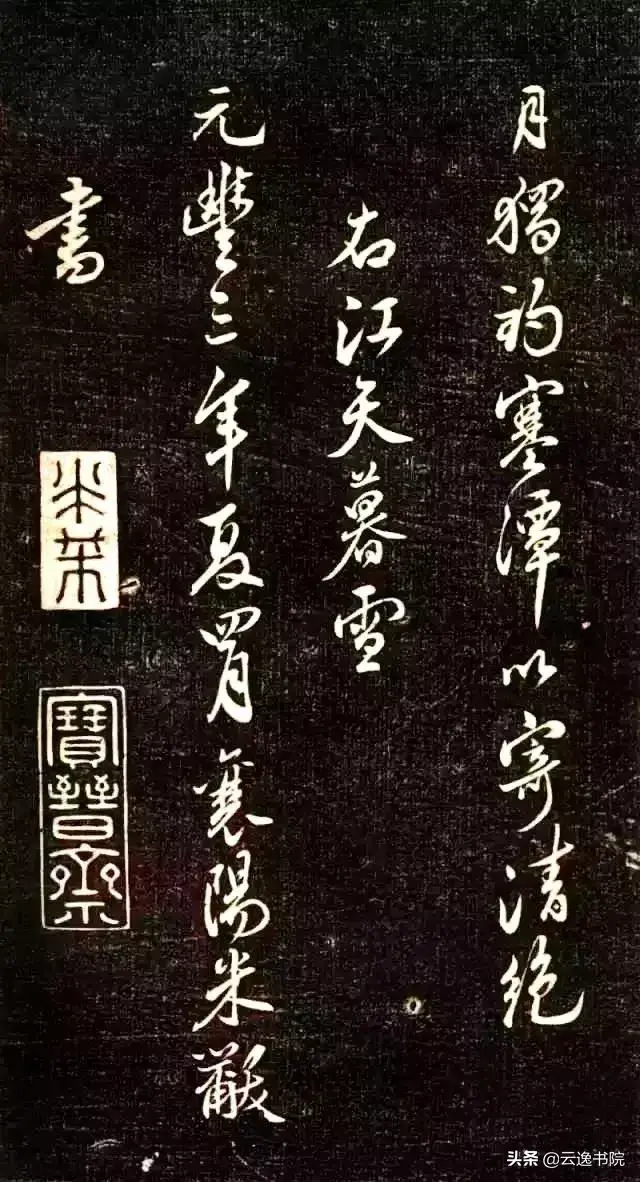 月獨釣寒潭以寄清絶
右江天暮雪
元豐三年夏四月襄陽米黻
書
米芾
寶晉齋
头条 @云逸书院